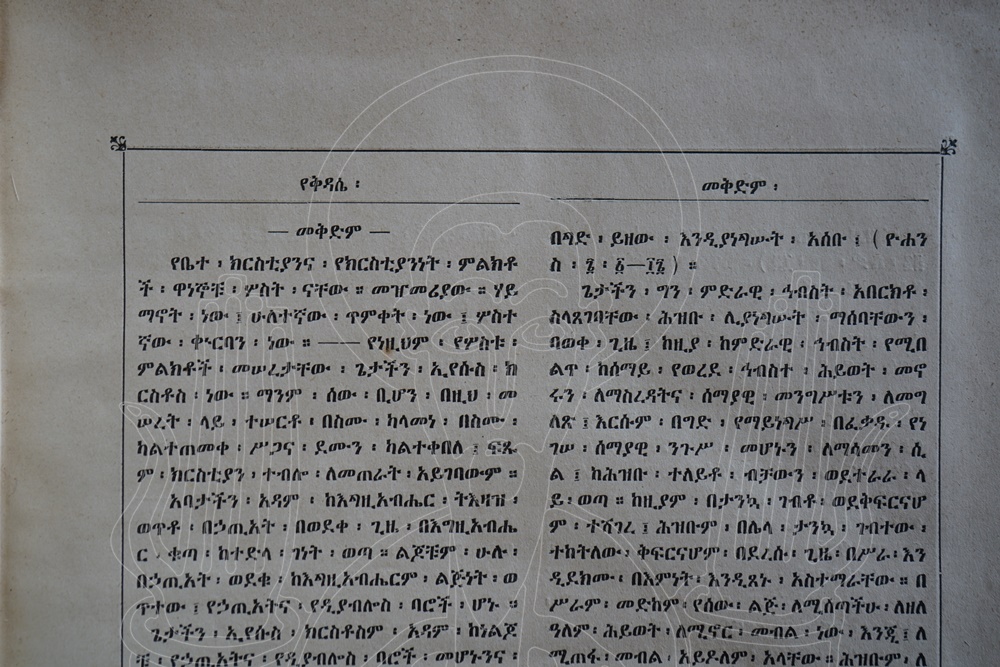 የቅዳሴ ፡
— መቅድም —
የቤተ ፡ ክርስቲያንና ፡ የክርስቲያንነት ፡ ምልክቶ
ች ፡ ዋነኞቹ ፡ ሦስት ፡ ናቸው ። መጀመሪያው ። ሃይ
ማኖት ፡ ነው ፤ ሁለተኛው ፡ ጥምቀት ፡ ነው ፤ ሦስተ
ኛው ፡ ቍርባን ፡ ነው ። —— የነዚህም ፡ የሦስቱ ፡
ምልክቶች ፡ መሠረታቸው ፡ ጌታችን ፡ ኢየሱስ ፡ ክ
ርስቶስ ፡ ነው ። ማንም ፡ ሰው ፡ ቢሆን ፡ በዚህ ፡ መ
ሠረት ፡ ላይ ፡ ተሠርቶ ፡ በስሙ ፡ ካላመነ ፡ በስሙ ፡
ካልተጠመቀ ፡ ሥጋና ፡ ደሙን ፡ ካልተቀበለ ፤ ፍጹ
ም ፡ ክርስቲያን ፡ ተብሎ ፡ ለመጠራት ፡ አይገባውም ።
አባታችን ፡ አዳም ፡ ከእግዚአብሔር ፡ ትእዛዝ ፡
ወጥቶ ፡ በኃጢአት ፡ በወደቀ ፡ ጊዜ ፡ በእግዚአብሔ
ር ፡ ቁጣ ፡ ከተድላ ፡ ገነት ፡ ወጣ ። ልጆቹም ፡ ሁሉ ፡
በኃጢአት ፡ ወደቁ ፡ ከእግዚአብሔርም ፡ ልጅነት ፡ ወ
ጥተው ፤ የኃጢአትና ፡ የዲያብሎስ ፡ ባሮች ፡ ሆኑ ።
ጌታችን ፡ ኢየሱስ ፡ ክርስቶስም ፡ አዳም ፡ ከነልጆ
ቹ ፡ የኃጢአትና ፡ የዲያብሎስ ፡ ባሮች ፡ መሆኑንና ፡
መቅድም ፡
በግድ ፡ ይዘው ፡ እንዲያነግሡት ፡ አሰቡ ፤ ( ዮሐን
ስ ፡ ፮ ፡ ፩—፲፮ ) ።
ጌታችን ፡ ግን ፡ ምድራዊ ፡ ኅብስት ፡ አበርክቶ ፡
ስላጸገባቸው ፡ ሕዝቡ ፡ ሊያነግሡት ፡ ማሰባቸውን ፡
ባወቀ ፡ ጊዜ ፤ ከዚያ ፡ ከምድራዊ ፡ ኅብስት ፡ የሚበ
ልጥ ፡ ከሰማይ ፡ የወረደ ፡ ኅብስተ ፡ ሕይወት ፡ መኖ
ሩን ፡ ለማስረዳትና ፡ ሰማያዊ ፡ መንግሥቱን ፡ ለመግ
ለጽ ፤ እርሱም ፡ በግድ ፡ የማይነግሥ ፡ በፈቃዱ ፡ የነ
ገሠ ፡ ሰማያዊ ፡ ንጉሥ ፡ መሆኑን ፡ ለማሳመን ፡ ሲ
ል ፤ ከሕዝቡ ፡ ተለይቶ ፡ ብቻውን ፡ ወደተራራ ፡ ላ
ይ ፡ ወጣ ። ከዚያም ፡ በታንኳ ፡ ገብቶ ፡ ወደቅፍርናሆ
ም ፡ ተሻገረ ፤ ሕዝቡም ፡ በሌላ ፡ ታንኳ ፡ ገብተው ፡
ተከትለው ፡ ቅፍርናሆም ፡ በደረሱ ፡ ጊዜ ፡ በሥራ ፡ እን
ዲደክሙ ፡ በእምነት ፡ እንዲጸኑ ፡ አስተማራቸው ። በ
ሥራም ፡ መድከም ፡ የሰው ፡ ልጅ ፡ ለሚሰጣችሁ ፡ ለዘለ
ዓለም ፡ ሕይወት ፡ ለሚኖር ፡ መብል ፡ ነው ፡ እንጂ ፤ ለ
ሚጠፋ ፡ መብል ፡ አይዶለም ፡ አላቸው ። ሕዝቡም ፡ ለ